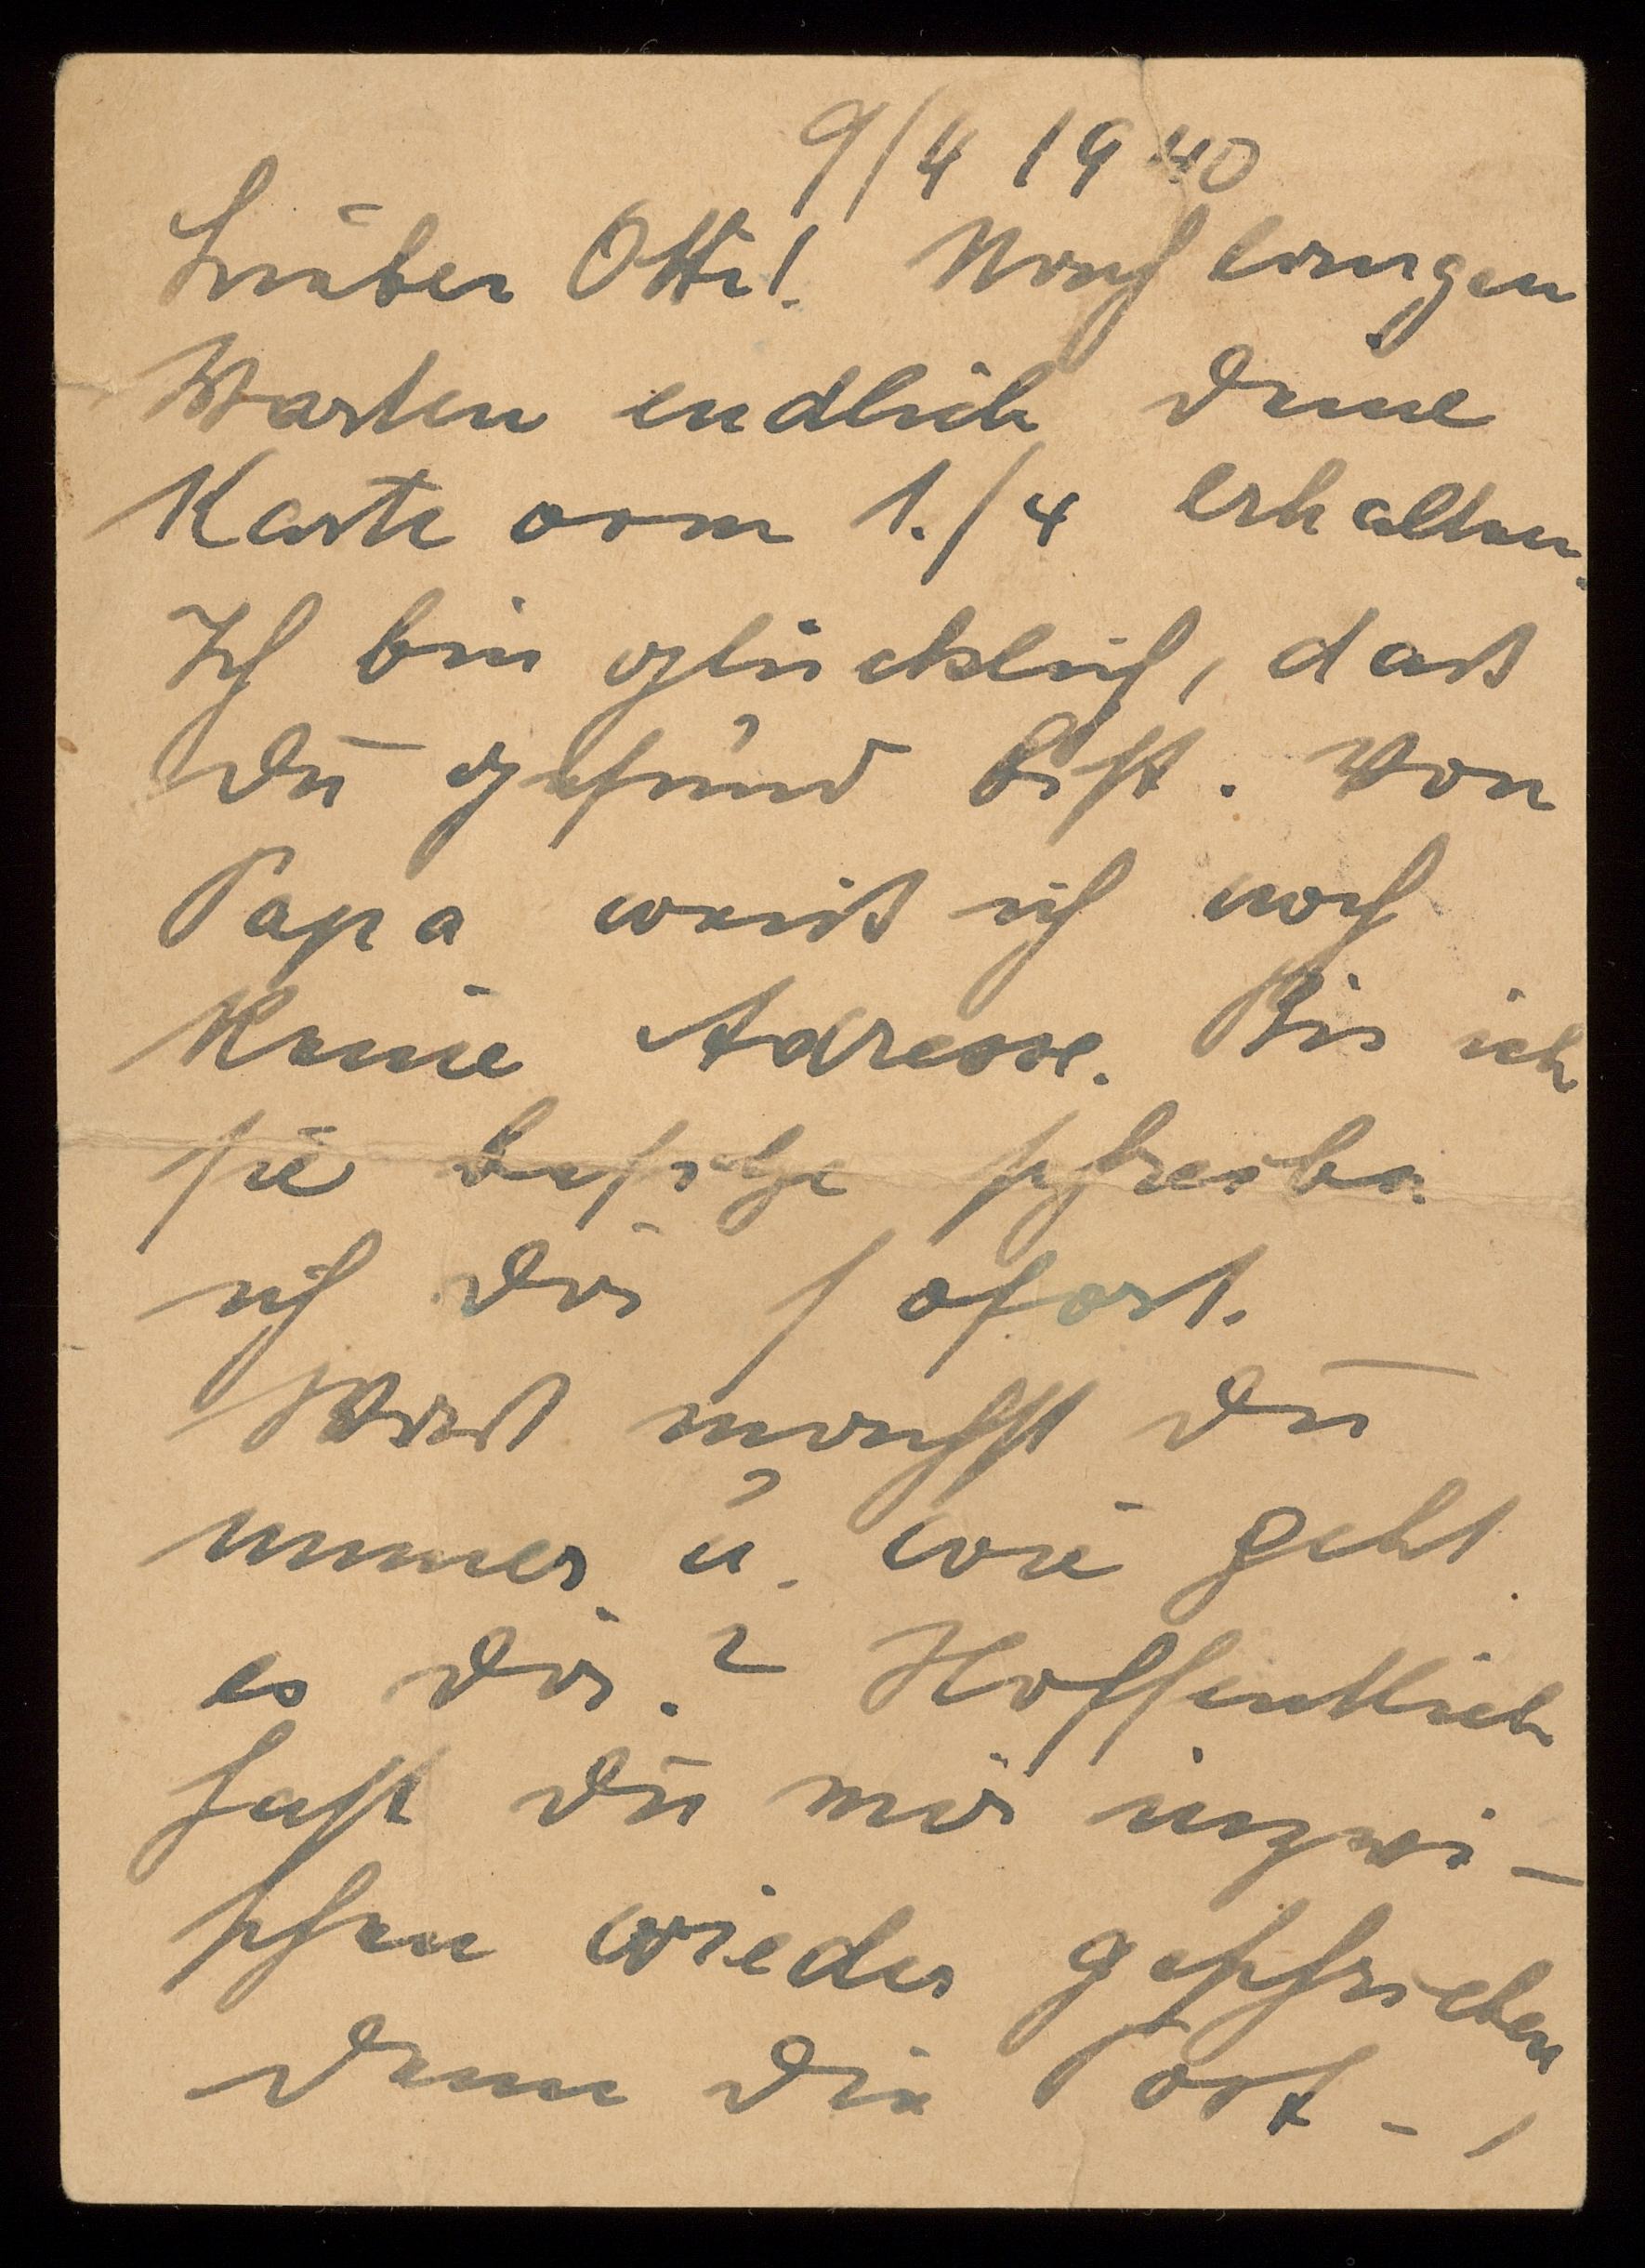 9/4 1940
Lieber Otti! Nach langen
Warten endlich Deine
Karte vom 1./4 erhalten.
Ich bin glücklich, daß
Du gesund bist. Von
Papa weiß ich noch
keine Adresse. Bis ich
sie besitze schreibe
ich Dir sofort.
Was machst Du
immer u. wie geht
es Dir? Hoffentlich
hast Du mir inzwi-
schen wieder geschrieben,
denn die Post-